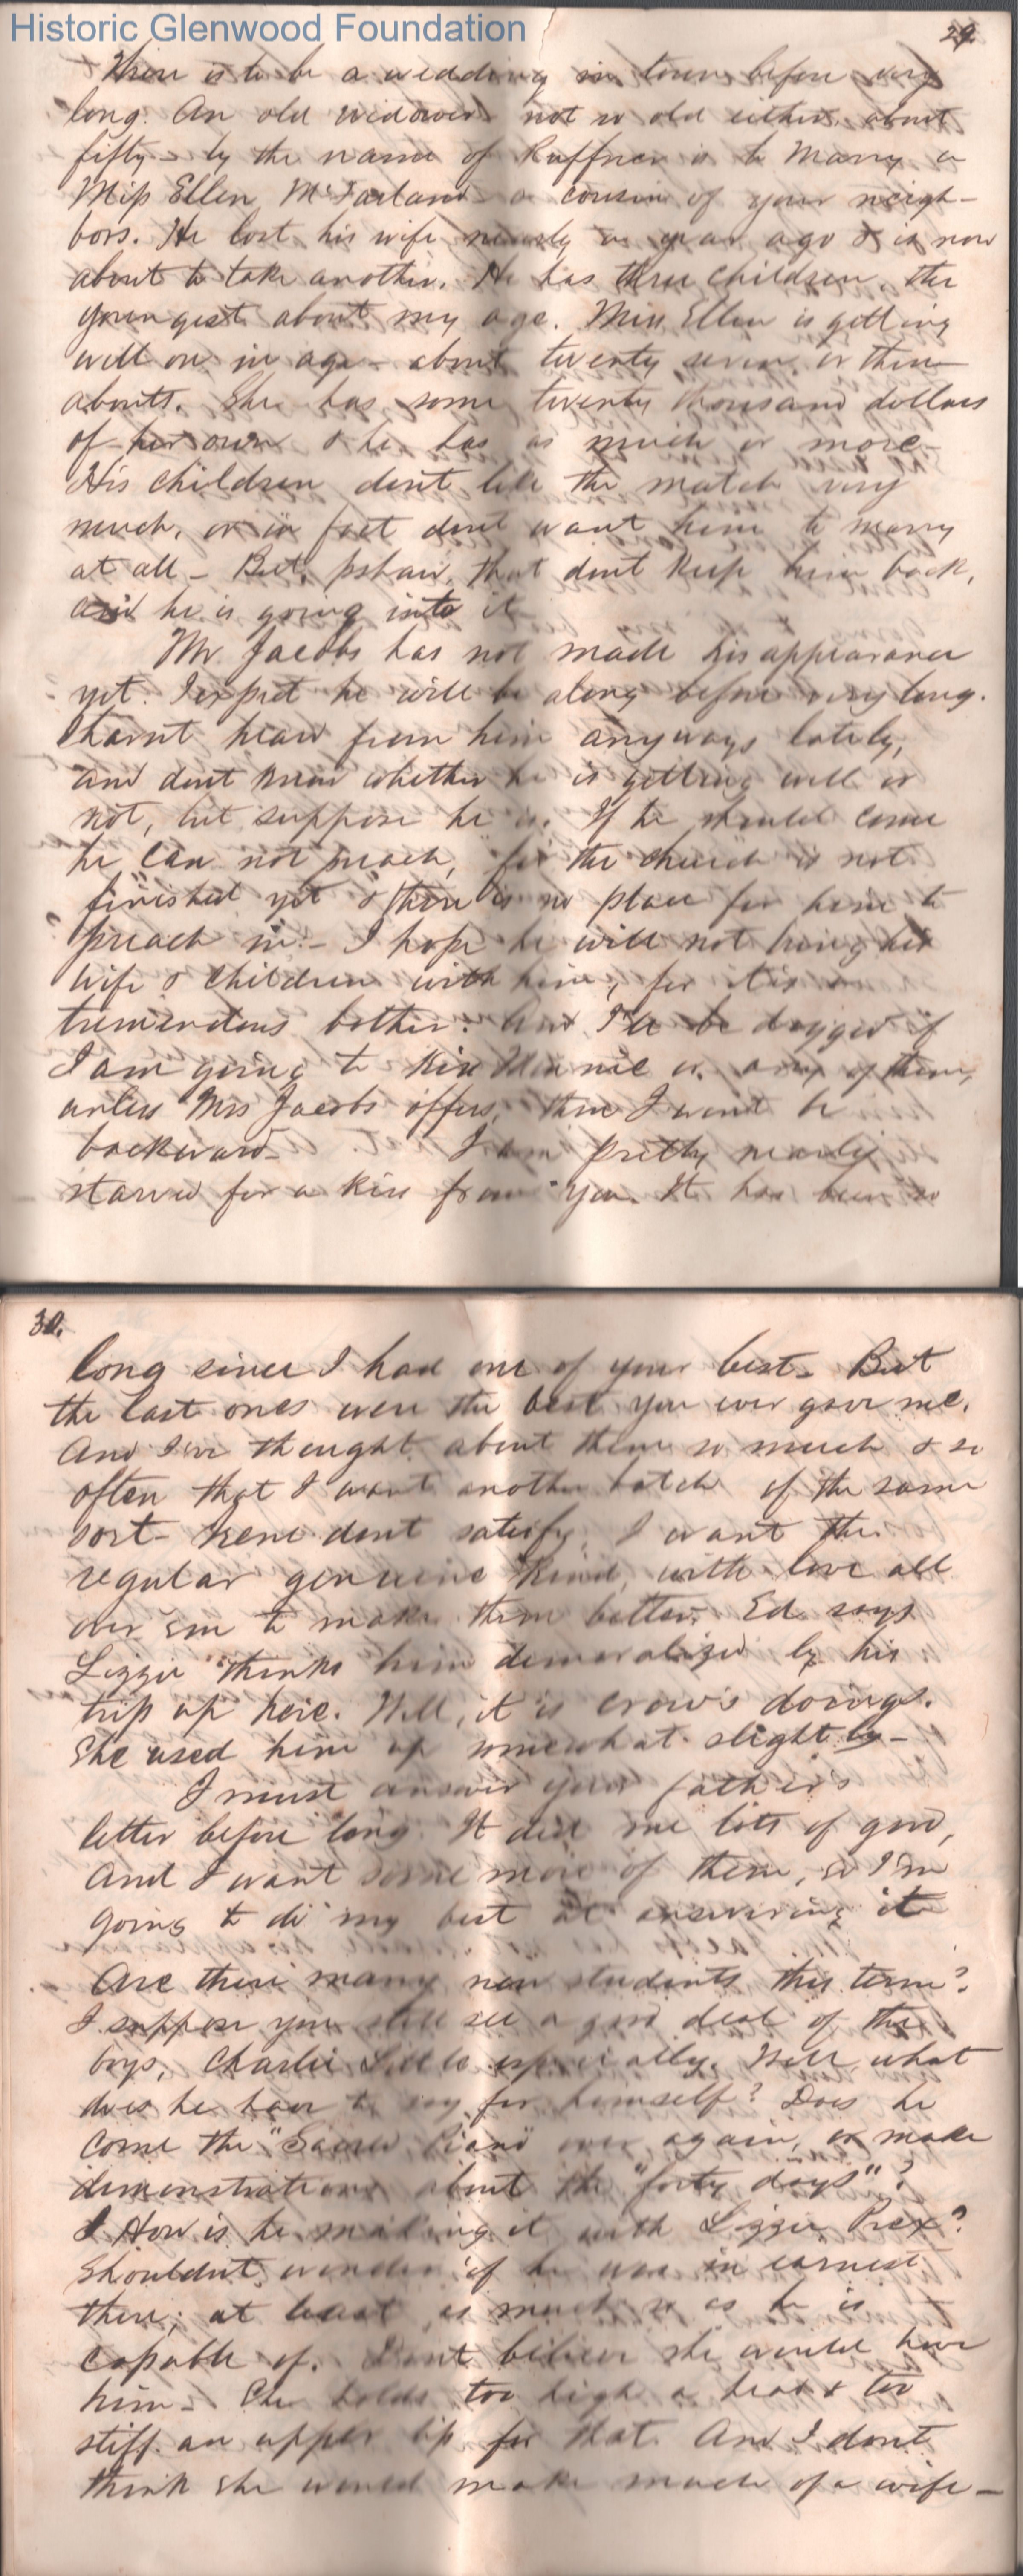 Historic Glenwood Foundation
29.
There is to be a wedding in town before very
long. An old widower not so old either, about
fifty – by the name of Ruffner is to marry a
Miss Ellen McFarland – a cousin of your neigh-
bors. He lost his wife nearly a year ago & is now
about to take another. He has three children, the
youngest about my age. Miss Ellen is getting
well on in age – about twenty seven or there
abouts. She has some twenty thousand dollars
of her own & he has as much or more –
His children dont like the match very
much, or in fact dont want him to marry
at all – But, pshaw, that dont keep him back,
and he is going into it
Mr Jacobs has not made his appearance
yet. I expect he will be along before very long.
I havnt heard from him anyways lately,
and dont know whether he is getting well or
not, but suppose he is. If he should come
he can not preach, for the church is not
finished yet & there is no place for him to
preach in. – I hope he will not bring his
wife & children with him, for it is a
tremendous bother. And I'll be dogged if
I am going to kiss Minnie or any of them,
unless Mrs Jacobs offers, then I wont be
backward – I am pretty nearly
starved for a kiss from you. It has been so
30.
long since I had one of your best – But
the last ones were the best you ever gave me.
And I've thought about them so much & so
often that I want another batch of the same
sort – dont satisfy, I want the
regular genuine kind, with love all
over 'em to make them better. Ed says
Lizzie thinks him demoralized by his
trip up here. Well, it is Crow's doings.
She used him up somewhat slightly –
I must answer your father's
letter before long. It did me lots of good,
And I want some more of them, so I'm
going to do my best at answering it
Are there many new students this term?
I suppose you still see a good deal of the
boys, Charlie Little especially. Well, what
does he have to say for himself? Does he
come the "Sacred Piano" over again, or make
demonstrations about the "forty days"?
How is he making it with Lizzie
Shouldnt wonder if he was in earnest
there; at least as much so as he is
capable of. Dont believe she would have
him – She holds too high a head & too
stiff an upper lip for that. And I dont
think she would make much of a wife –